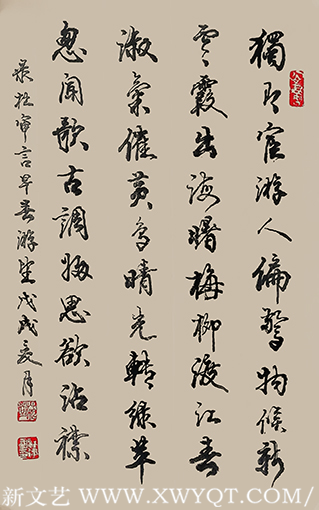 獨有宦游人偏驚物候新
雲霞出海曙梅柳渡江春
淑氣催黄鸟晴光轉緑苹
忽闻歌古調歸思欲沾襟
录杜审言早春游望戊戌夏月
新文艺 WWW.XWYQT.COM